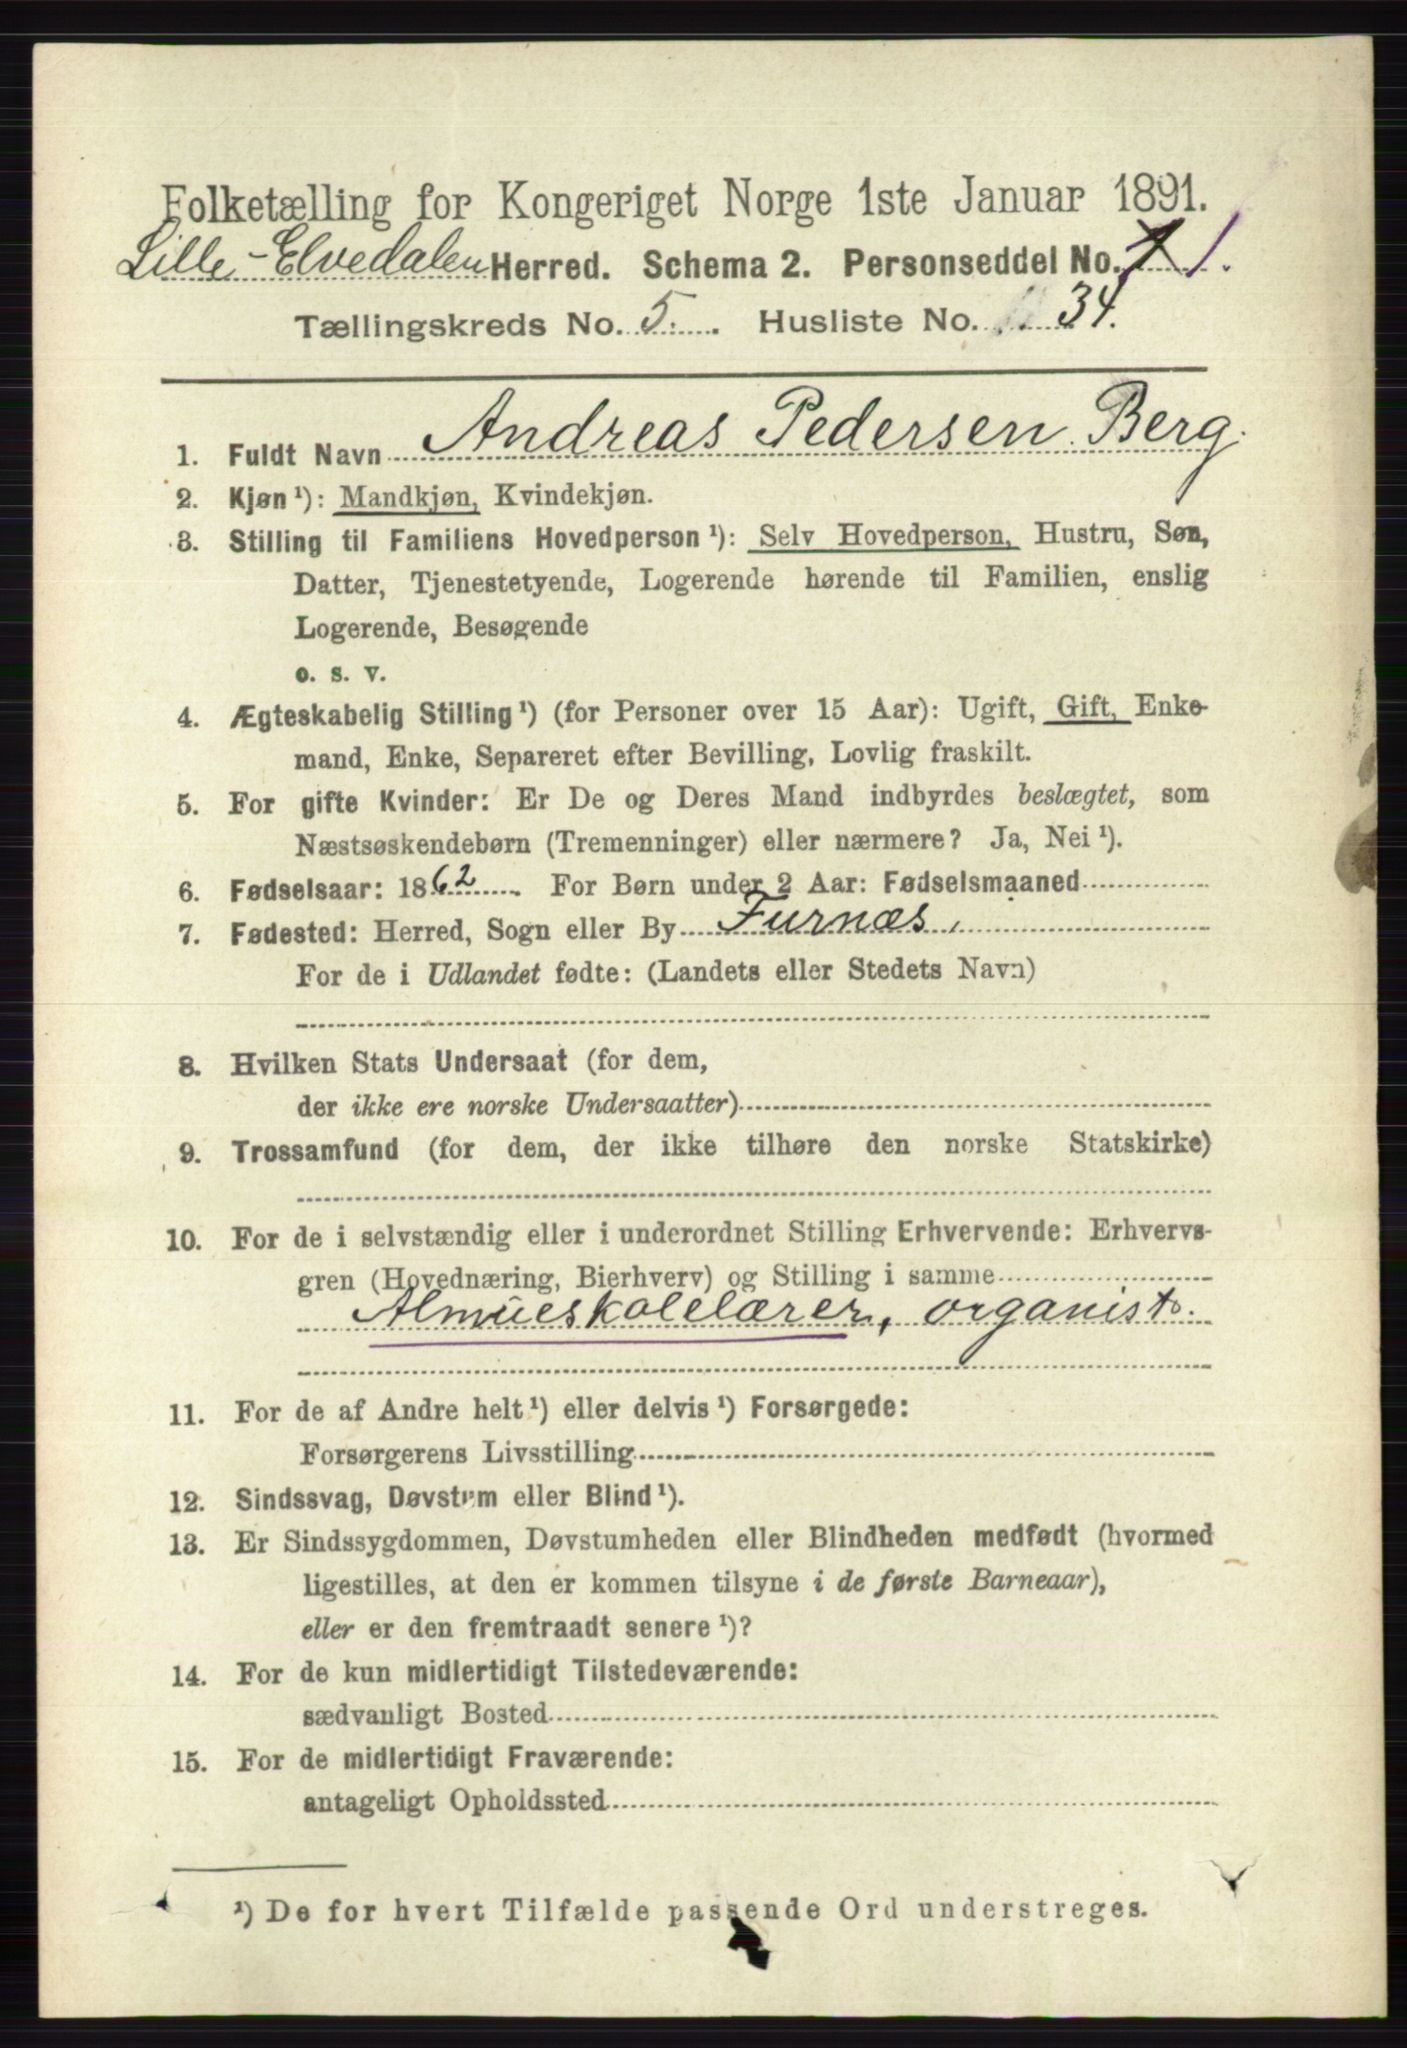 Folketælling for Kongeriget Norge 1ste Januar 1891.
Lille-Elvedalen Herred. Schema 2. Personseddel No. 1.
Tællingskreds No. 5. Husliste No. 34.
1. Fuldt Navn Andreas Pedersen Berg.
2. Kjøn ¹): Mandkjøn, Kvindekjøn.
3. Stilling til Familiens Hovedperson ¹): Selv Hovedperson, Hustru, Søn,
Datter, Tjenestetyende, Logerende hørende til Familien, enslig
Logerende, Besøgende
o. s. v.
4. Ægteskabelig Stilling ¹) (for Personer over 15 Aar): Ugift, Gift, Enke-
mand, Enke, Separeret efter Bevilling, Lovlig fraskilt.
5. For gifte Kvinder: Er De og Deres Mand indbyrdes beslægtet, som
Næstsøskendebørn (Tremenninger) eller nærmere? Ja, Nei ¹).
6. Fødselsaar: 1862. For Børn under 2 Aar: Fødselsmaaned
7. Fødested: Herred, Sogn eller By Furnæs.
For de i Udlandet fødte: (Landets eller Stedets Navn)
8. Hvilken Stats Undersaat (for dem,
der ikke ere norske Undersaatter)
9. Trossamfund (for dem, der ikke tilhøre den norske Statskirke)
10. For de i selvstændig eller i underordnet Stilling Erhvervende: Erhvervs-
gren (Hovednæring, Bierhverv) og Stilling i samme
Almueskolelærer, organist.
11. For de af Andre helt ¹) eller delvis ¹) Forsørgede:
Forsørgerens Livsstilling
12. Sindssvag, Døvstum eller Blind ¹).
13. Er Sindssygdommen, Døvstumheden eller Blindheden medfødt (hvormed
ligestilles, at den er kommen tilsyne i de første Barneaar),
eller er den fremtraadt senere ¹)?
14. For de kun midlertidigt Tilstedeværende:
sædvanligt Bosted
15. For de midlertidigt Fraværende:
antageligt Opholdssted
¹) De for hvert Tilfælde passende Ord understreges.